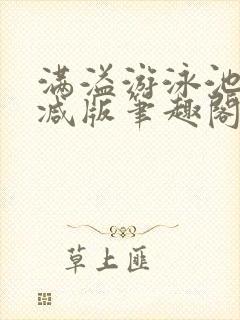 满溢游泳池
减版笔趣阁
草上匪